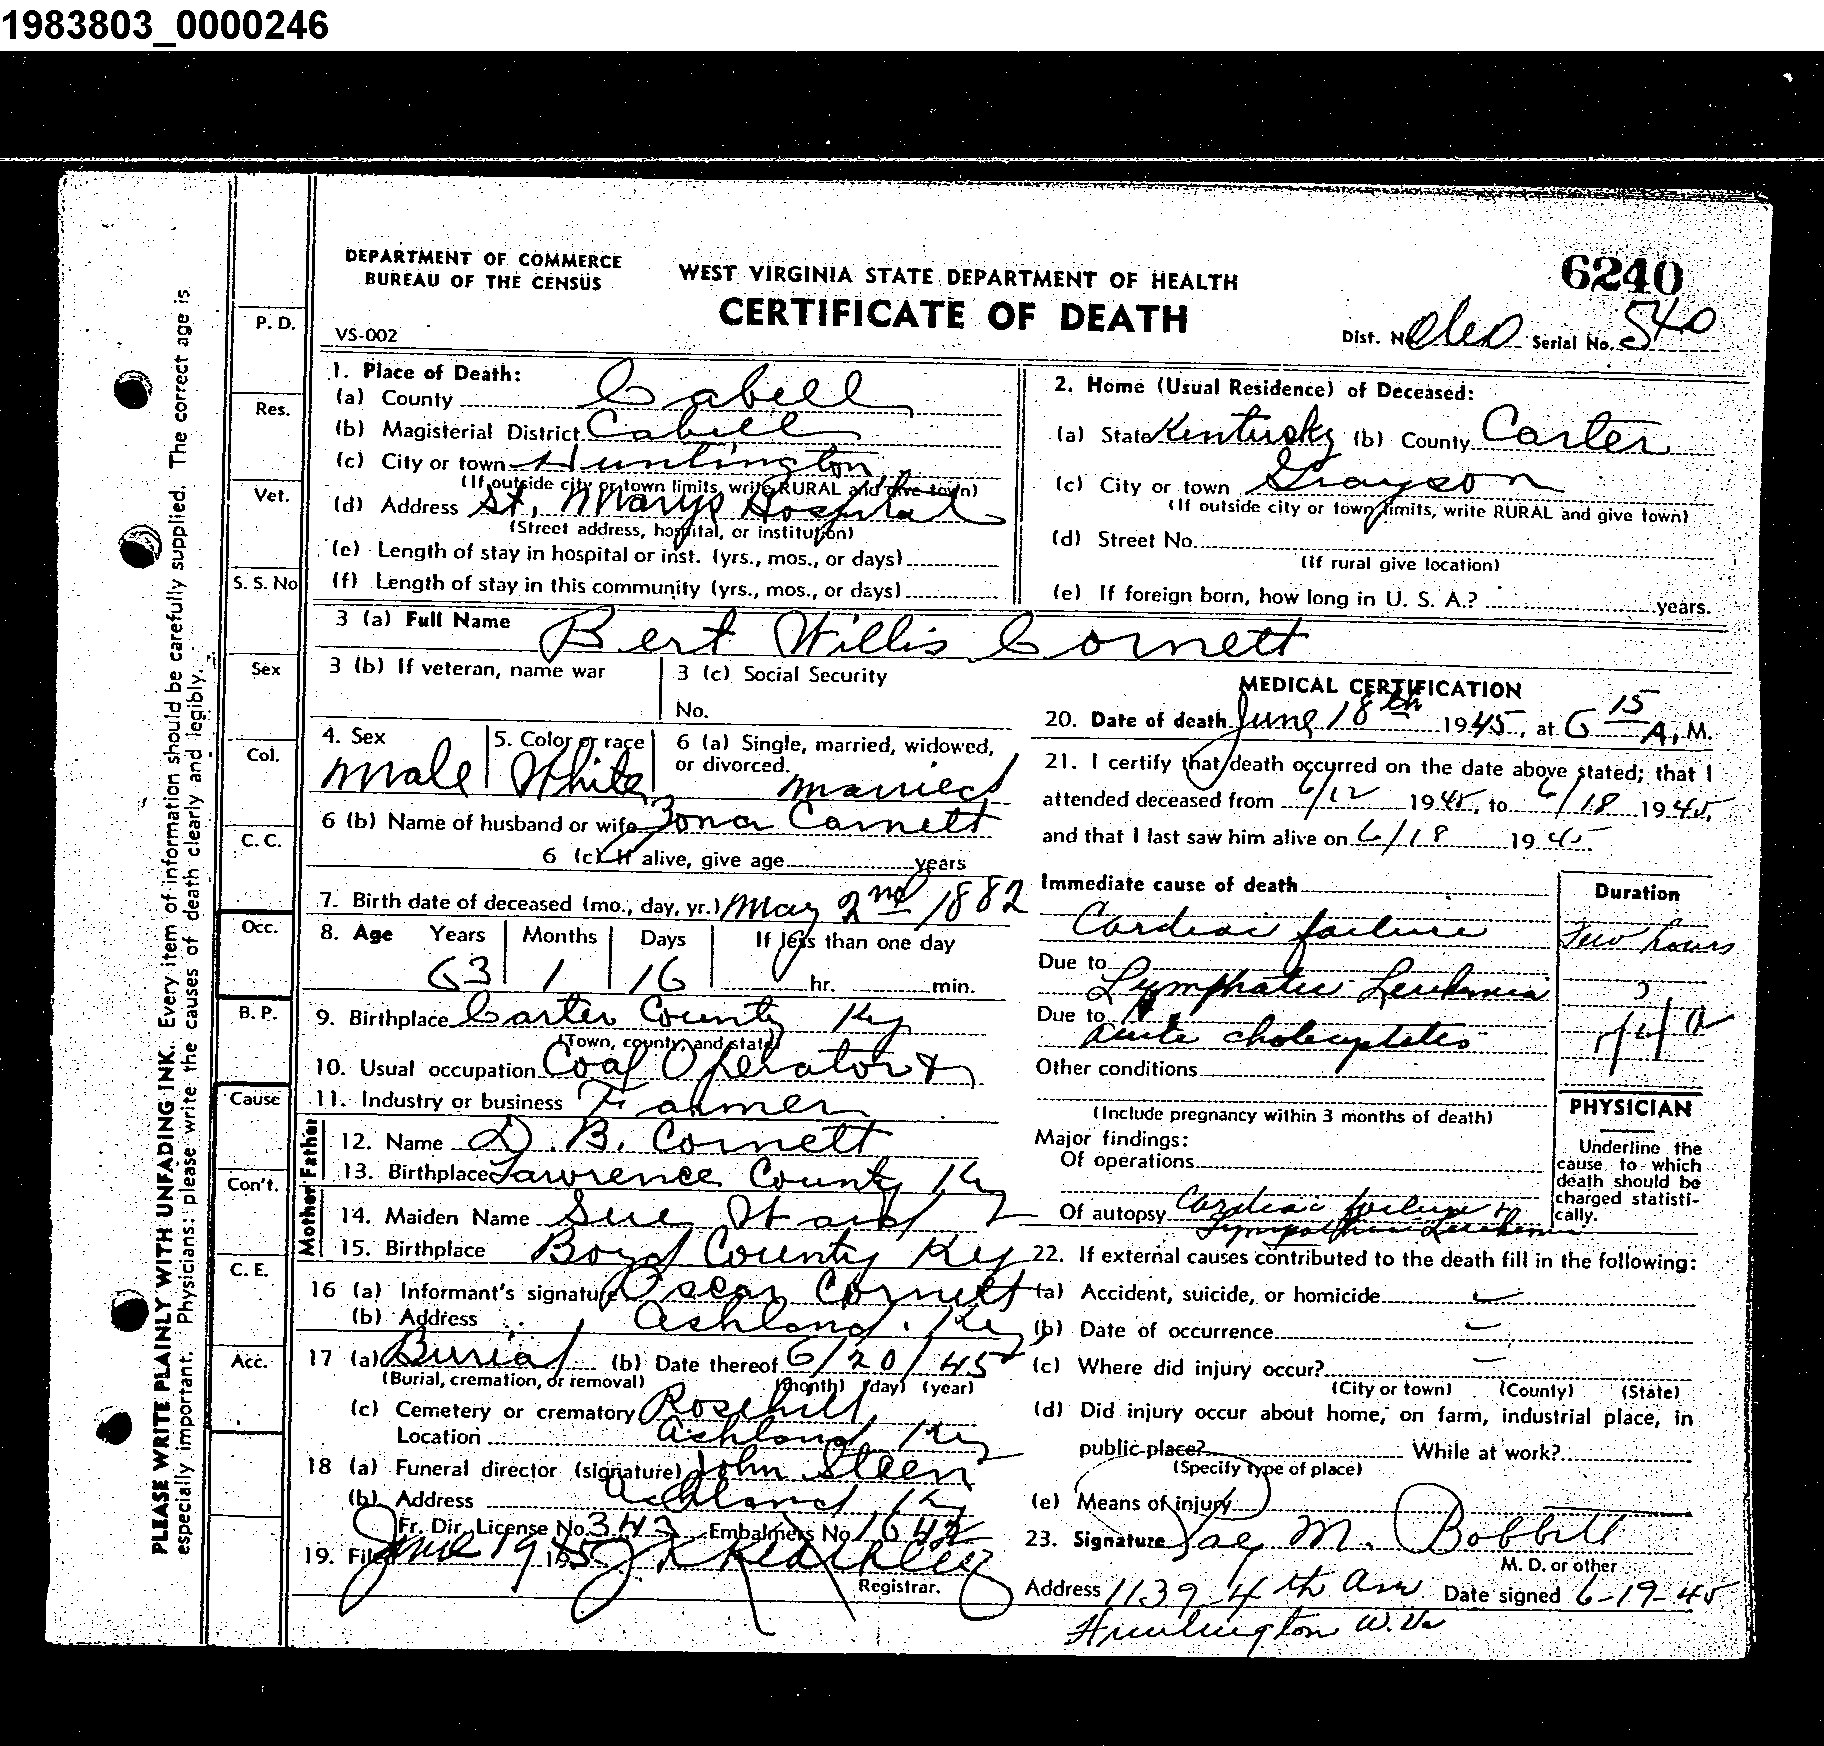 1983803_0000246
DEPARTMENT OF COMMERCE
BUREAU OF THE CENSUS
WEST VIRGINIA STATE DEPARTMENT OF HEALTH
CERTIFICATE OF DEATH
6240
VS-002
Dist. No. Serial No. 540
PLEASE WRITE PLAINLY WITH UNFADING INK. Every item of information should be carefully supplied. The correct age is
especially important. Physicians: please write the causes of death clearly and legibly.
P. D.
Res.
Vet.
S. S. No
Sex
Col.
C. C.
Occ.
B. P.
Cause
Con't.
C. E.
Acc.
1. Place of Death:
(a) County Cabell
(b) Magisterial District Cabell
(c) City or town Huntington
(If outside city or town limits, write RURAL and give town)
(d) Address St. Marys Hospital
(Street address, hospital, or institution)
(e) Length of stay in hospital or inst. (yrs., mos., or days)
(f) Length of stay in this community (yrs., mos., or days)
2. Home (Usual Residence) of Deceased:
(a) State Kentucky (b) County Carter
(c) City or town Grayson
(If outside city or town limits, write RURAL and give town)
(d) Street No.
(If rural give location)
(e) If foreign born, how long in U. S. A.? years.
3 (a) Full Name Bert Willis Cornett
3 (b) If veteran, name war
3 (c) Social Security
No.
4. Sex Male
5. Color or race White
6 (a) Single, married, widowed,
or divorced. Married
6 (b) Name of husband or wife Zona Cornett
6 (c) If alive, give age years
7. Birth date of deceased (mo., day, yr.) May 2nd 1882
8. Age Years Months Days If less than one day
63 1 16 hr. min.
9. Birthplace Carter County Ky
(Town, county, and state)
10. Usual occupation Coal Operator &
11. Industry or business Farmer
Father
12. Name D. B. Cornett
13. Birthplace Lawrence County Ky
Mother
14. Maiden Name Sue Ward
15. Birthplace Boyd County Ky
16 (a) Informant's signature Oscar Cornett
(b) Address Ashland, Ky
17 (a) Burial (b) Date thereof 6/20/45
(Burial, cremation, or removal) (month) (day) (year)
(c) Cemetery or crematory Rosehill
Location Ashland Ky
18 (a) Funeral director (signature) John Steen
(b) Address Ashland Ky
Fr. Dir. License No. 343 Embalmers No. 1642
19. Filed June 19 1945
Registrar.
MEDICAL CERTIFICATION
20. Date of death June 18th 1945, at 6 15 A. M.
21. I certify that death occurred on the date above stated; that I
attended deceased from 6/12 1945, to 6/18 1945,
and that I last saw him alive on 6/18 1945.
Immediate cause of death
Duration
Cardiac failure Few hours
Due to
Lymphatic Leukemia ?
Due to
acute cholecystitis
Other conditions
(Include pregnancy within 3 months of death)
Major findings:
Of operations
Of autopsy Cardiac failure &
Lymphatic Leukemia
PHYSICIAN
Underline the
cause to which
death should be
charged statisti-
cally.
22. If external causes contributed to the death fill in the following:
(a) Accident, suicide, or homicide
(b) Date of occurrence
(c) Where did injury occur?
(City or town) (County) (State)
(d) Did injury occur about home, on farm, industrial place, in
public place? While at work?
(Specify type of place)
(e) Means of injury
23. Signature M. Bobbitt
M. D. or other
Address 1139 4th Ave Date signed 6-19-45
Huntington W. Va